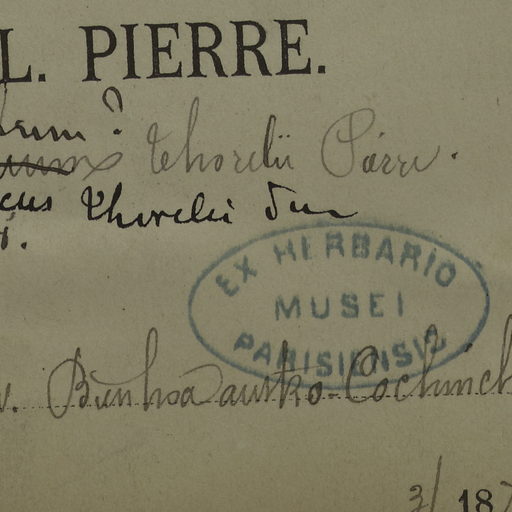 L. PIERRE.
?
Thorelii Pierre.
Thorelii
EX HERBARIO
MUSEI
PARISIENSIS
Bienhoa austro-Cochinch
3/ 187